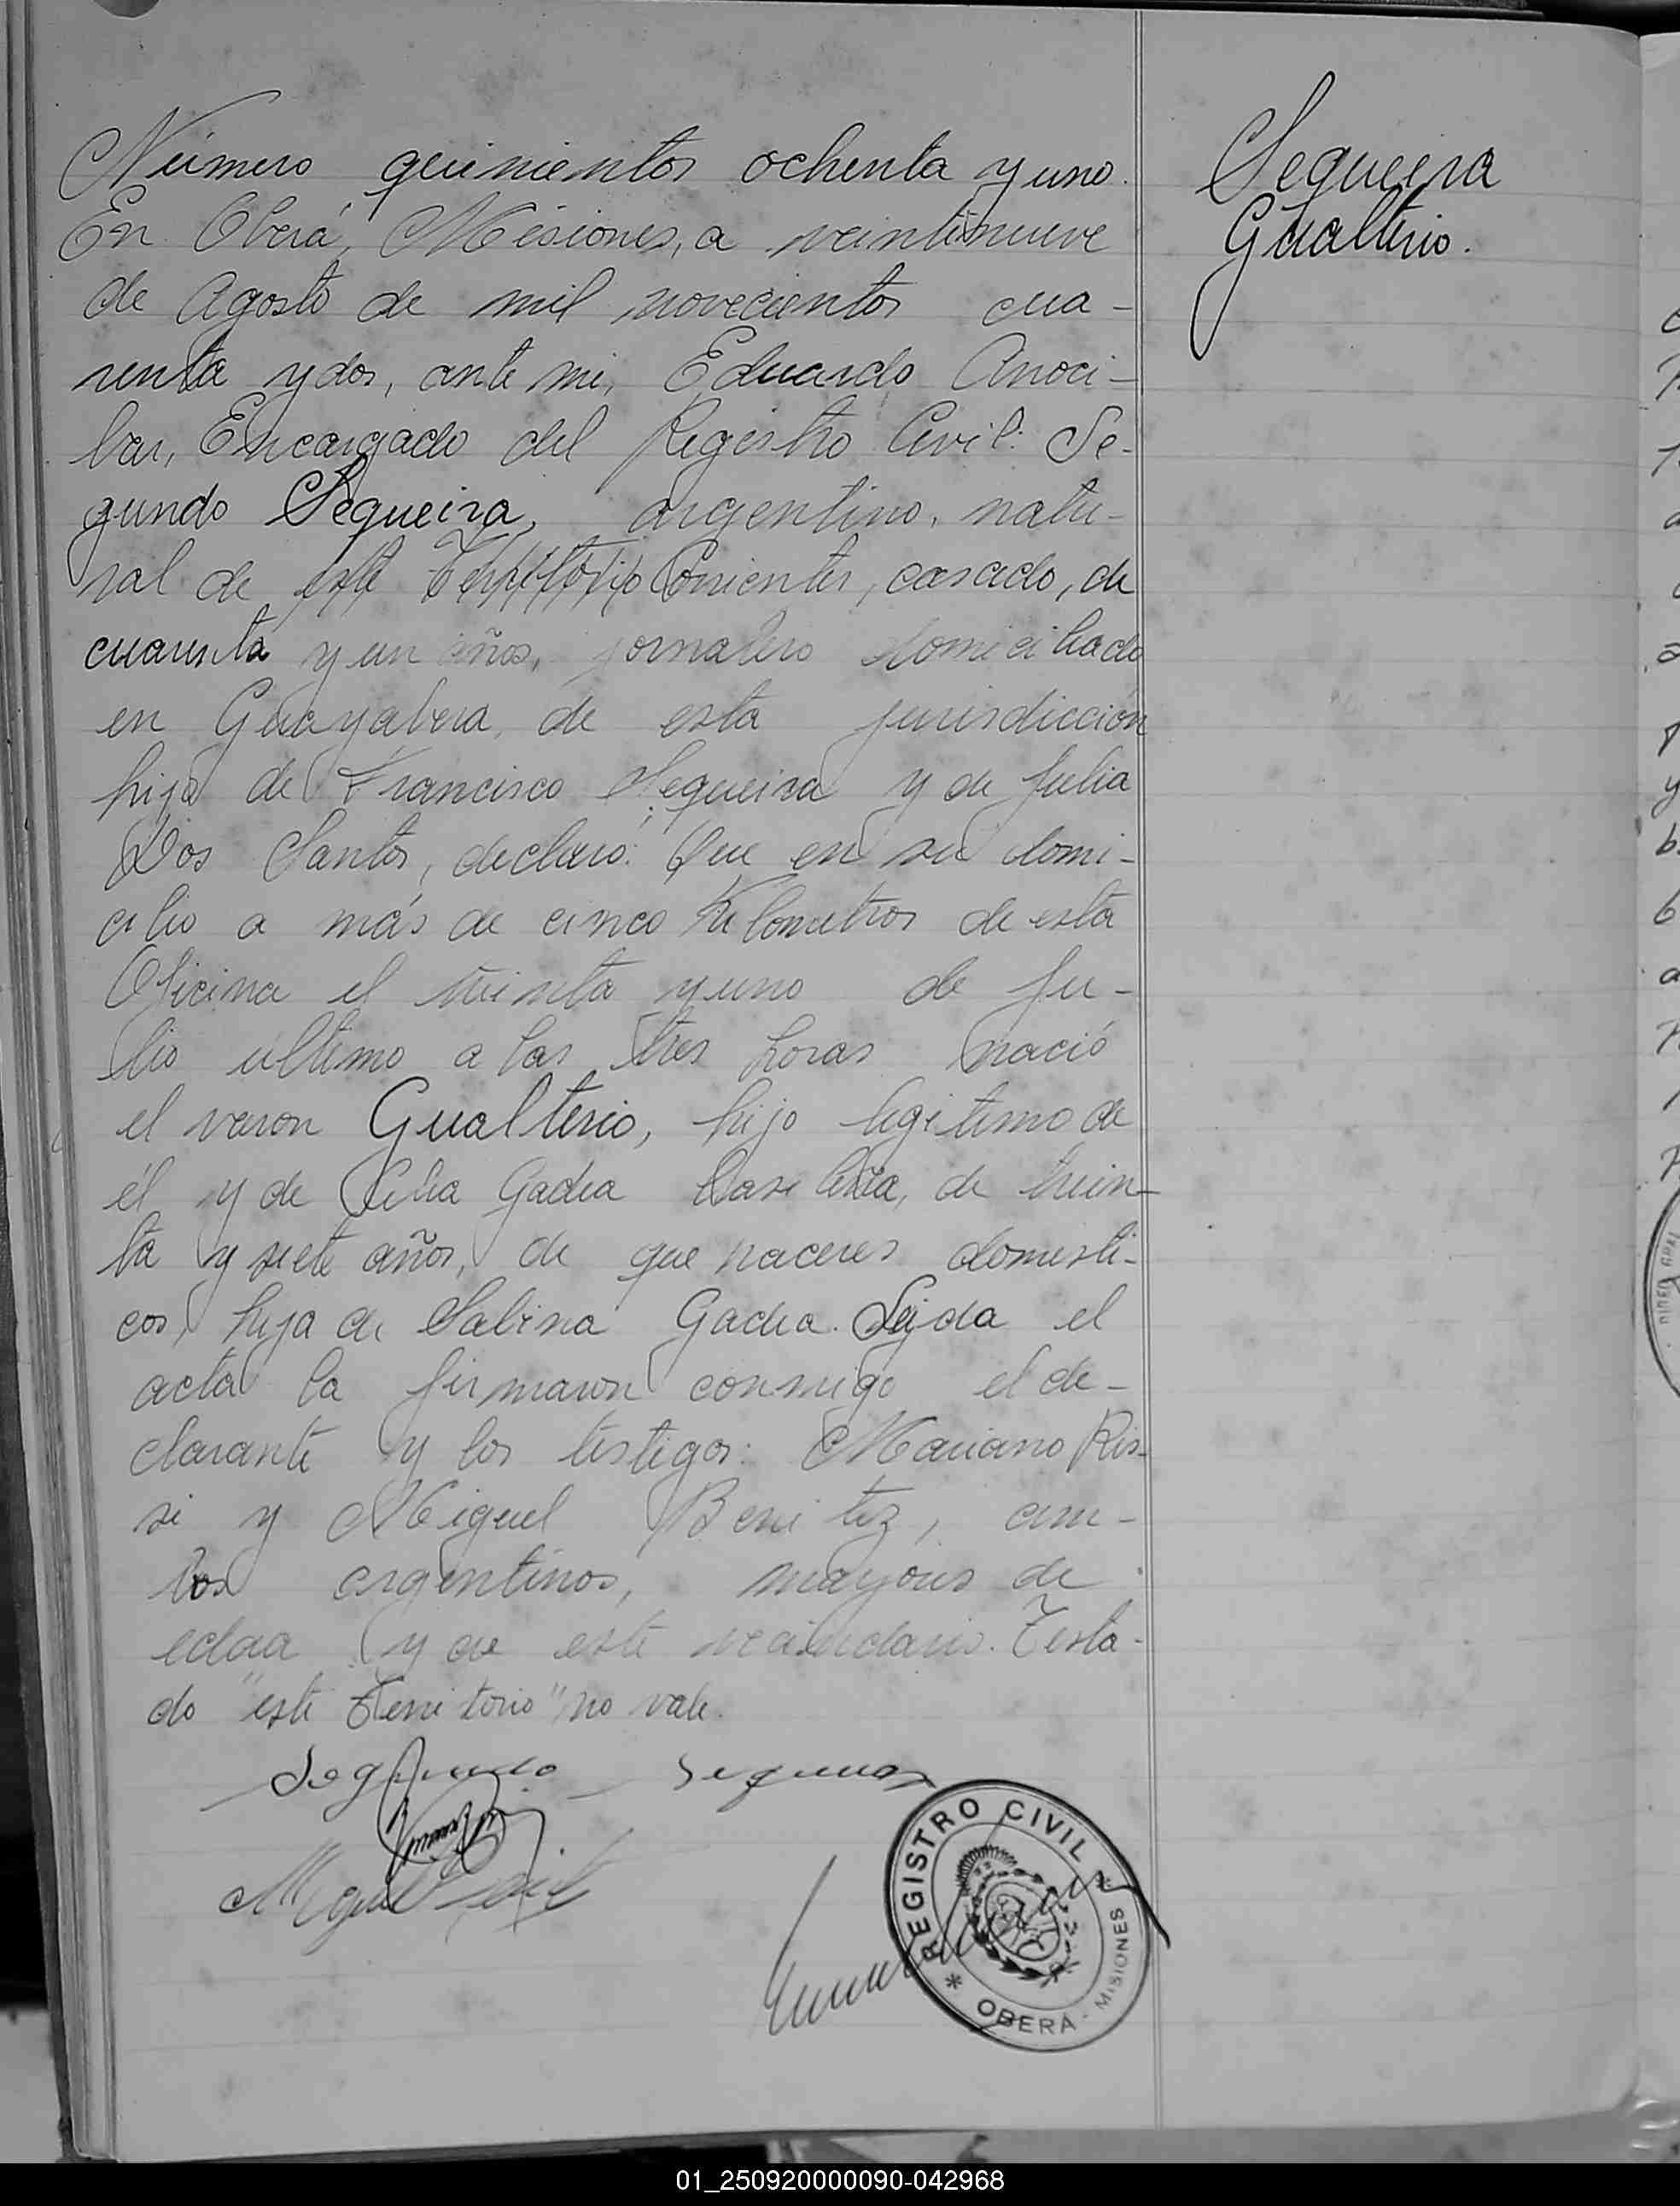 Número quinientos ochenta y uno.
En Oberá, Misiones, a veintinueve
de Agosto de mil novecientos cua-
renta y dos, ante mi, Eduardo Anoci-
bar, Encargado del Registro Civil: Se-
gundo Sequeira, argentino, natu-
ral de este Territorio Corrientes, casado, de
cuarenta y un años, jornalero domiciliado
en Guayabera, de esta jurisdicción
hijo de Francisco Sequeira y de Julia
Dos Santos, declaró: Que en su domi-
cilio a más de cinco Kilometros de esta
Oficina el treinta y uno de Ju-
lio último a las tres horas nació
el varon Gualterio, hijo legitimo de
él y de Gadea, de trein-
ta y siete años, de que haceres domesti-
cos, hija de Sabina Gadea. Leída el
acta la firmaron conmigo el de-
clarante y los testigos: Mariano Ris-
si y Miguel Benitez, am-
bos argentinos, mayores de
edad y de este vecindario. Testa-
do "este Territorio" no vale.
Segundo Sequeira
Miguel
REGISTRO CIVIL
* OBERÁ - MISIONES *
Sequeira
Gualterio.
01_250920000090-042968